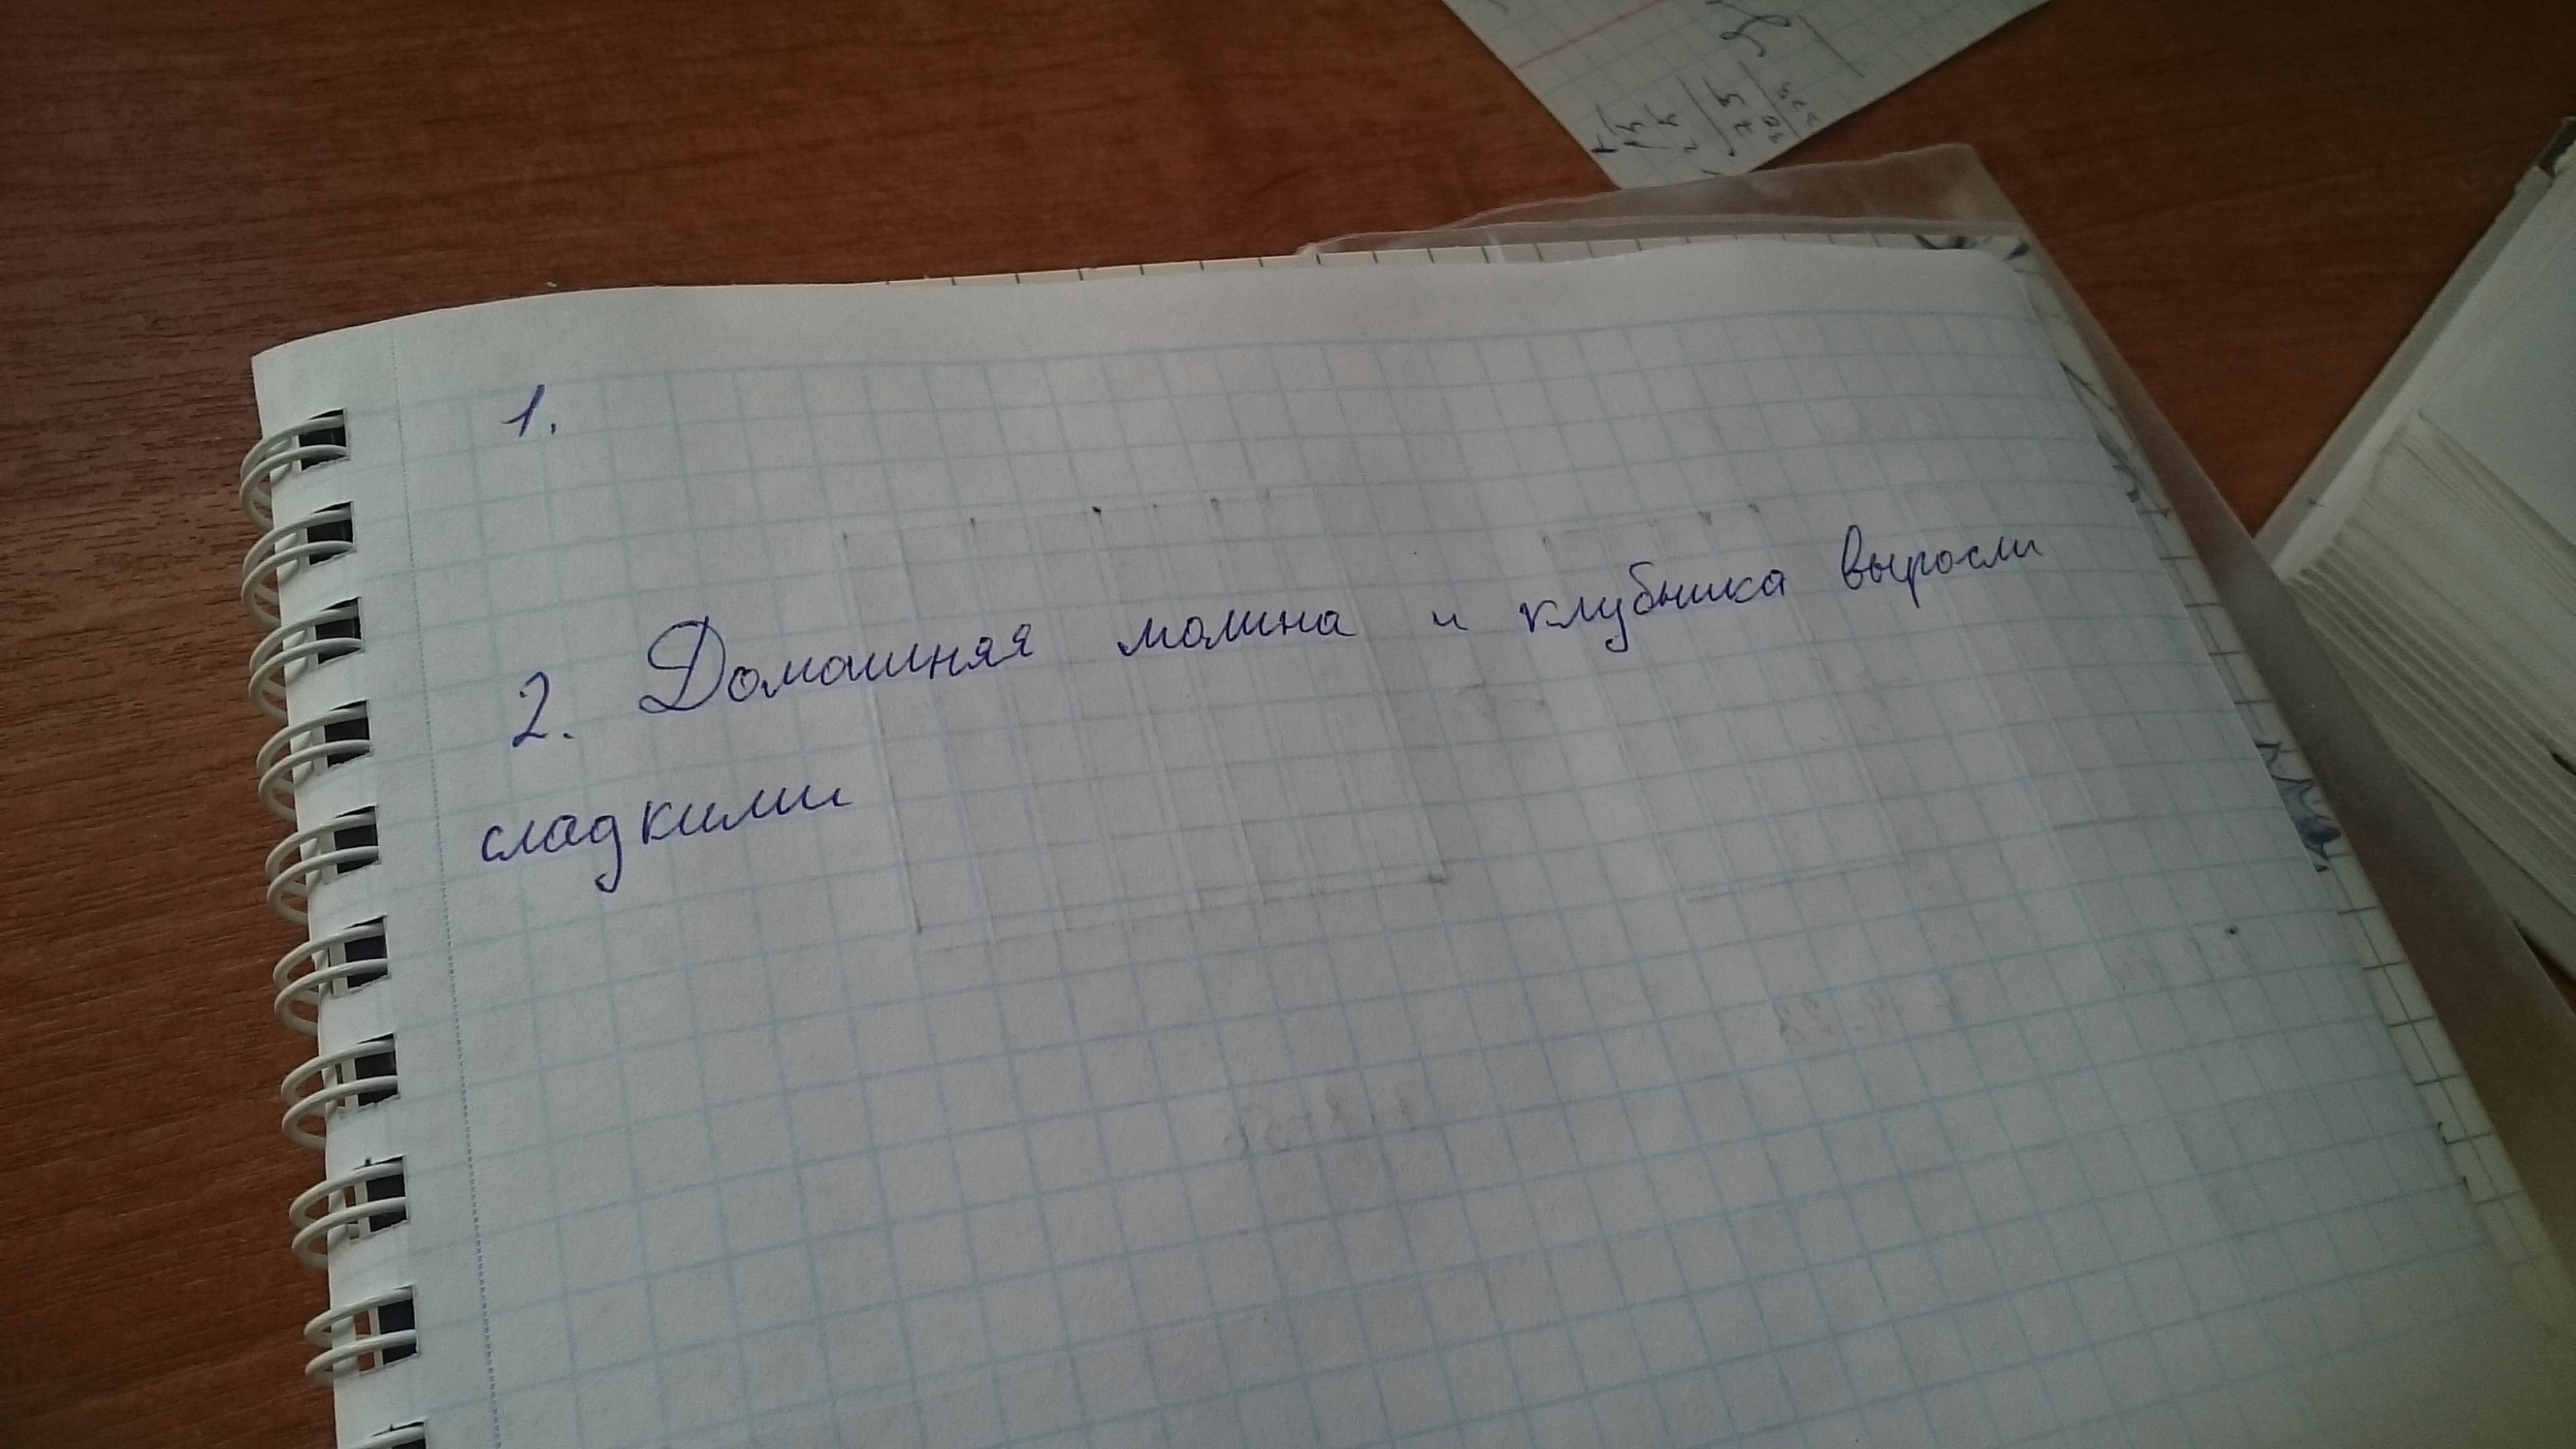 1.
2. Домашняя малина и клубника выросли
сладкими